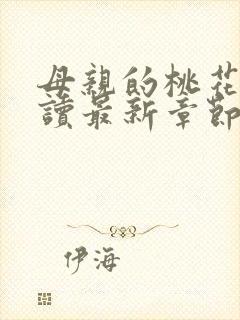 母親的桃花
讀最新章節
伊海